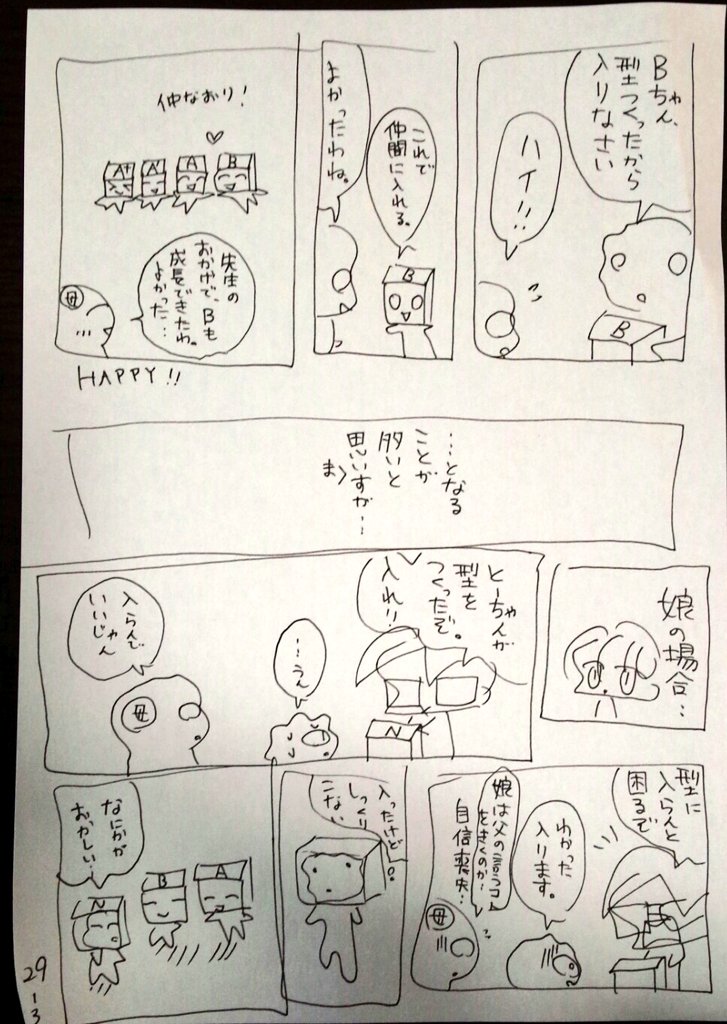 Bちゃん、
型つくったから
入りなさい
ハイ!!
B
これで
仲間に入れる。
よかったわね。
B
仲なおり!
A
A
A
B
先生の
おかげで、Bも
成長できたわ。
よかった…
母
HAPPY!!
…となる
ことが
多いと
思いますが…
娘の場合…
とーちゃんが
型を
つくったぞ。
入れ!!
…うん
入らんで
いいじゃん
母
N
型に
入らんと
困るで
わかった
入ります。
娘は父の言うコト
をきくのか…
自信喪失…
母
入ったけど
しっくり
こない
なにかが
おかしい…
N
B
A
29-3